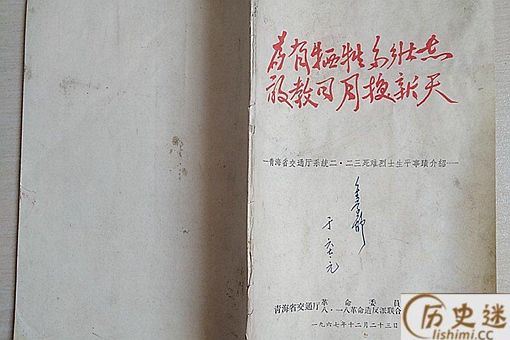 为有牺牲多壮志
敢教日月换新天
—青海省交通厅系统二·二三死难烈士生平事蹟介绍—
于六七.元
青海省交通厅革命委员
八·一八革命造反派联合
一九六七年十二月二十三日
历史迷
lishimi.cc